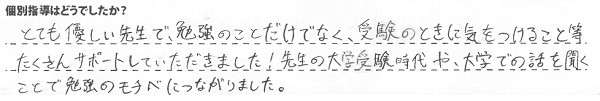 個別指導はどうでしたか？
とても優しい先生で、勉強のことだけでなく、受験のときに気をつけること等
たくさんサポートしていただきました！先生の大学受験時代や、大学での話を聞く
ことで勉強のモチベにつながりました。